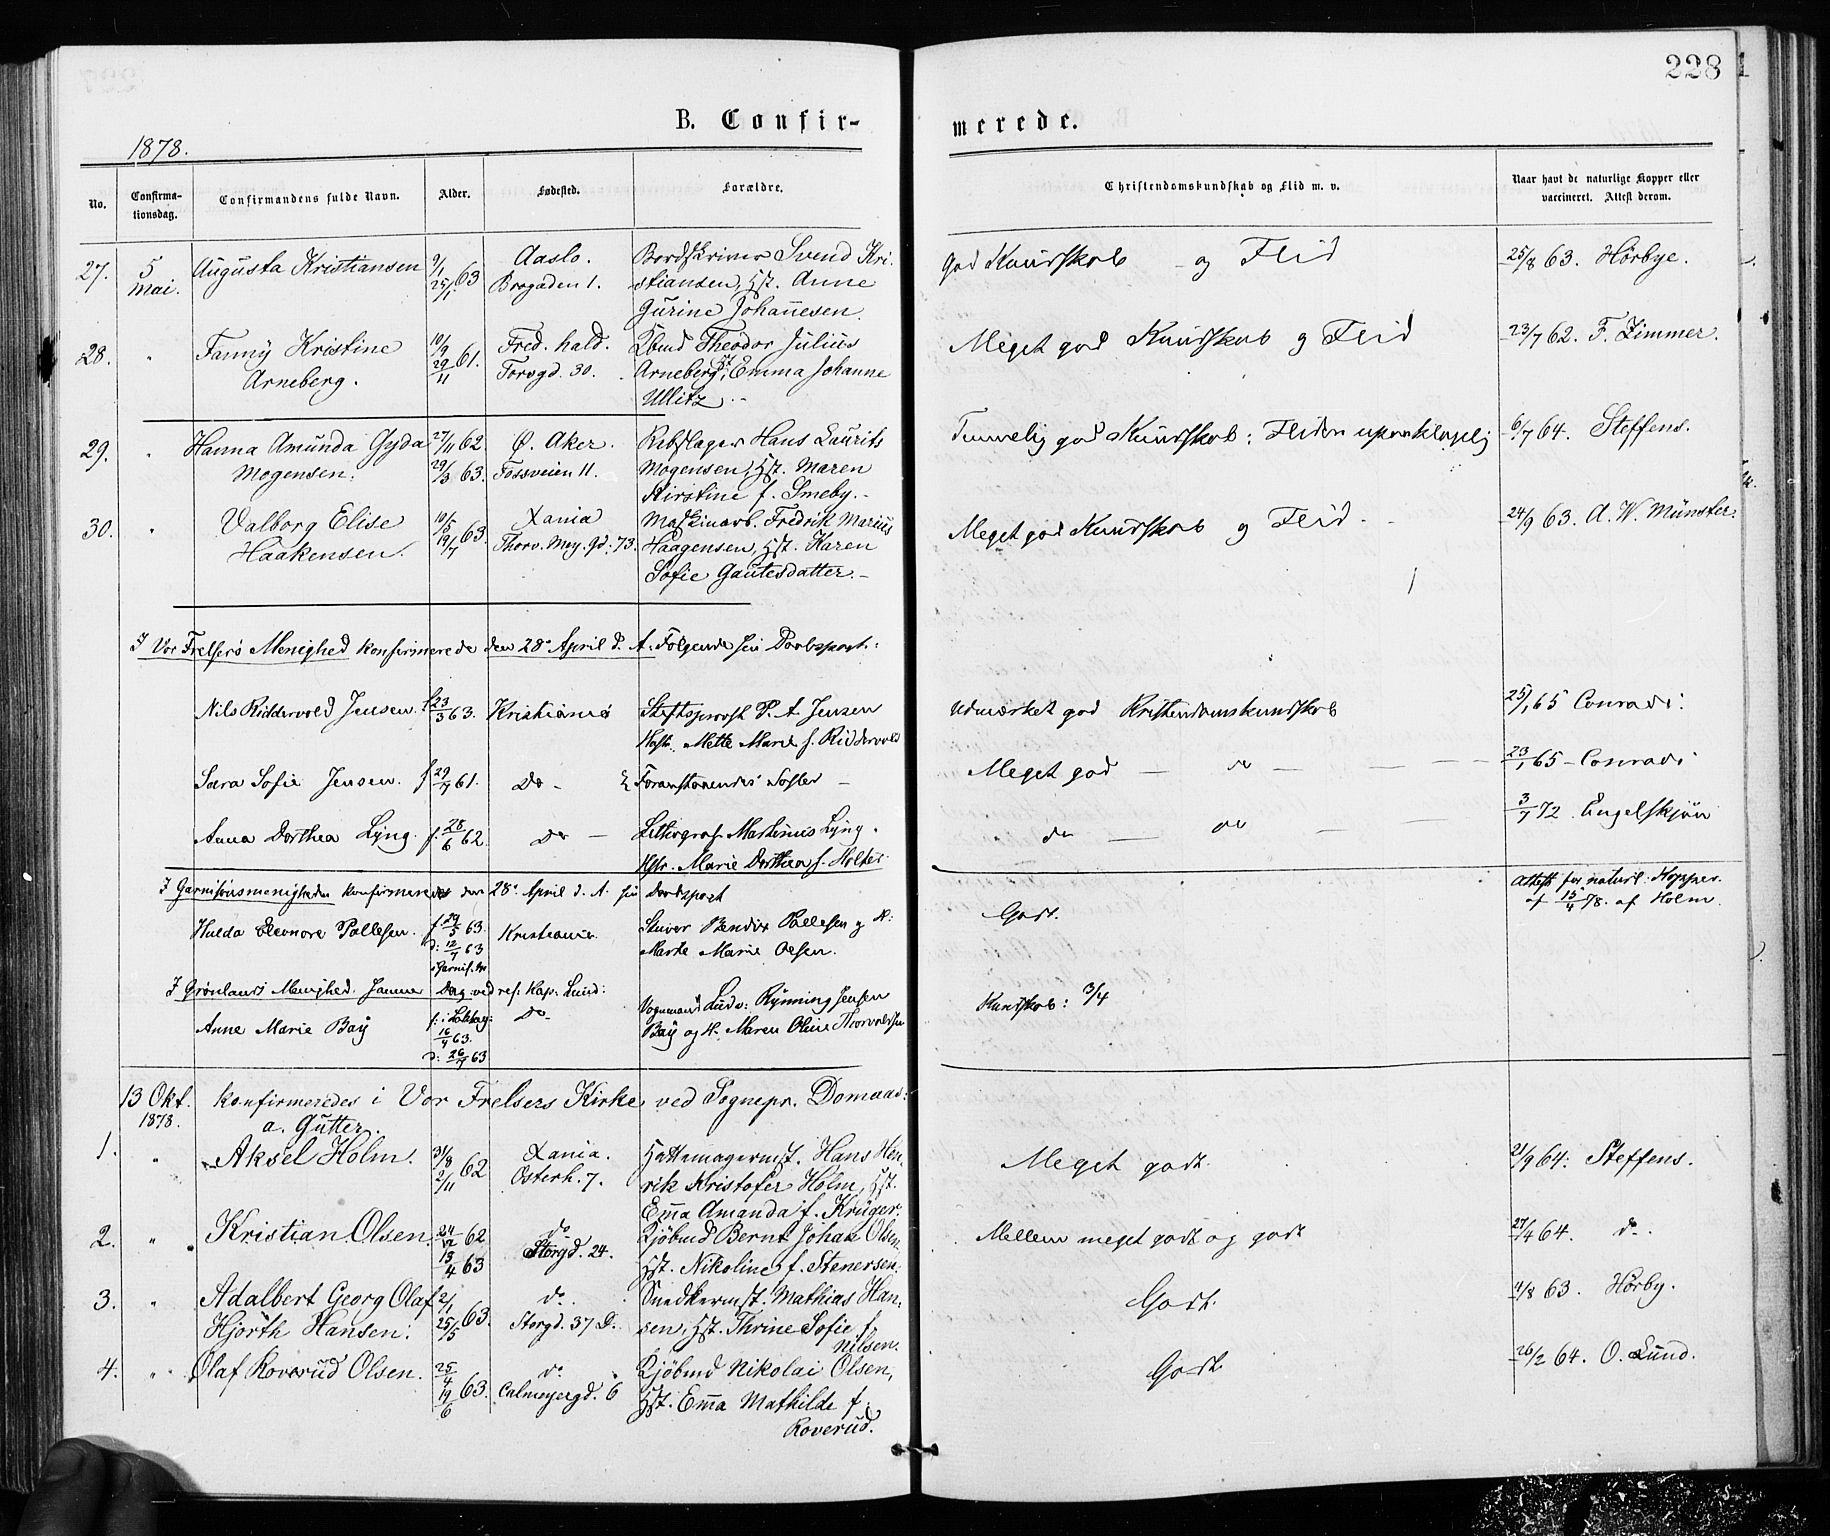 228
B. Confir-
merede.
1878.
No.
Confirma-
tionsdag.
Confirmandens fulde Navn.
Alder.
Fødested.
Forældre.
Christendomskundskab og Flid m. v.
Naar havt de naturlige Kopper eller
vaccineret. Attest derom.
27. 5 Augusta Kristiansen 9/1 63 Aaslo. Svend Kri- God Kundskab og Flid 25/8 63. Hörbye.
Mai. 25/1. Brogaden 1. stiansen, Hst. Anne
Gurine Johannesen.
28. " Fanny Kristine 10/9 61. Fred. hald. Kbmd Theodor Julius Meget god Kundskab og Flid 23/7 62. F. Zimmer.
Arneberg. 29/11 Torvgd. 30. Arneberg, Hst. Emma Johanne
Ullitz.
29. " Hanna Amunda Gyda 27/11 62. Ø. Aker. Rebslager Hans Laurits Temmelig god Kundskab; Fliden upaaklagelig 6/7 64. Steffens.
Mogensen. 29/3 63. Fossveien 11. Mogensen, Hst. Maren
Kirstine f. Smeby.
30. " Valborg Elise 10/5 63 Xania Maskinarb. Fredrik Marius Meget god Kundskab og Flid. 24/9 63. A. W. Münster.
Haakensen. 19/7 Thorv. Mey. gd: 73. Haagensen, Hst. Karen
Sofie Gautesdatter.
I Vor Frelsers Menighed konfirmerede den 28de April d. A. Følgende
Nils Riddervold Jensen. f 23/3 63. Kristiania Stiftsprovst P. A Jensen Udmærket god Kristendomskundskab 25/1 65 Conradi.
Mette Marie f. Riddervold
Sara Sofie Jensen. f 29/7 61. Do - Foranstaaendes Søster - Meget god — do — 23/1 65 - Conradi
Anna Dorthea Lÿng. f. 28/6 62. Do — Lithograf Martinus Lyng. do — do — 3/7 72. Engelskjön
Hstr. Marie Dorthea f. Holter.
I Garnisonsmenigheden konfirmeredes den 28de April d. A. Attest for naturl: Kopper.
af 13/4 78. af Holm.
Hulda Eleonore Pallesen. f 29/5 63. Kristiania. Skiver Bendix Pallesen og H: Godt.
d: 12/7 63 Marthe Marie Olsen.
I Grønlands Menighed. Samme Dag ved res: Kap: Lund:
Anne Marie Baÿ 16/4 63. Do. Vognmand Ludv: Rÿnning Jensen Kundskab: 3/4
d: 26/7 63 Baÿ og H. Maren Oline Thorvaldsen
13 Okt. konfirmeredes i Vor Frelsers Kirke ved Sognepr. Domaas:
1878. a. Gutter.
1. " Aksel Holm. 31/8 62 Xania. Hattemagermst. Hans Hen- Meget godt. 21/9 64: Steffens.
2/11 Osterh. 7. rik Kristofer Holm, Hst.
Emma Amanda f. Krüger.
2. " Kristian Olsen. 24/12 62 do Kjöbmd Bernt Johan Olsen Mellem meget godt og godt 27/4 64. do.
13/4 63 Storgd. 24. Hst. Nikoline f. Stenersen.
3. " Adalbert Georg Olaf 2/1 63. do. Snedkermst. Mathias Han- Godt. 4/8 63. Hörby.
Hjorth Hansen. 25/5 Storgd. 37 D. sen, Hst. Thrine Sofie f.
Nilsen.
4. " Olaf Roverud Olsen. 25/4 63. do Kjöbmd Nikolai Olsen, Godt 26/2 64. O. Lund.
19/6 Calmeyergd. 6 Hst. Emma Mathilde f.
Roverud.